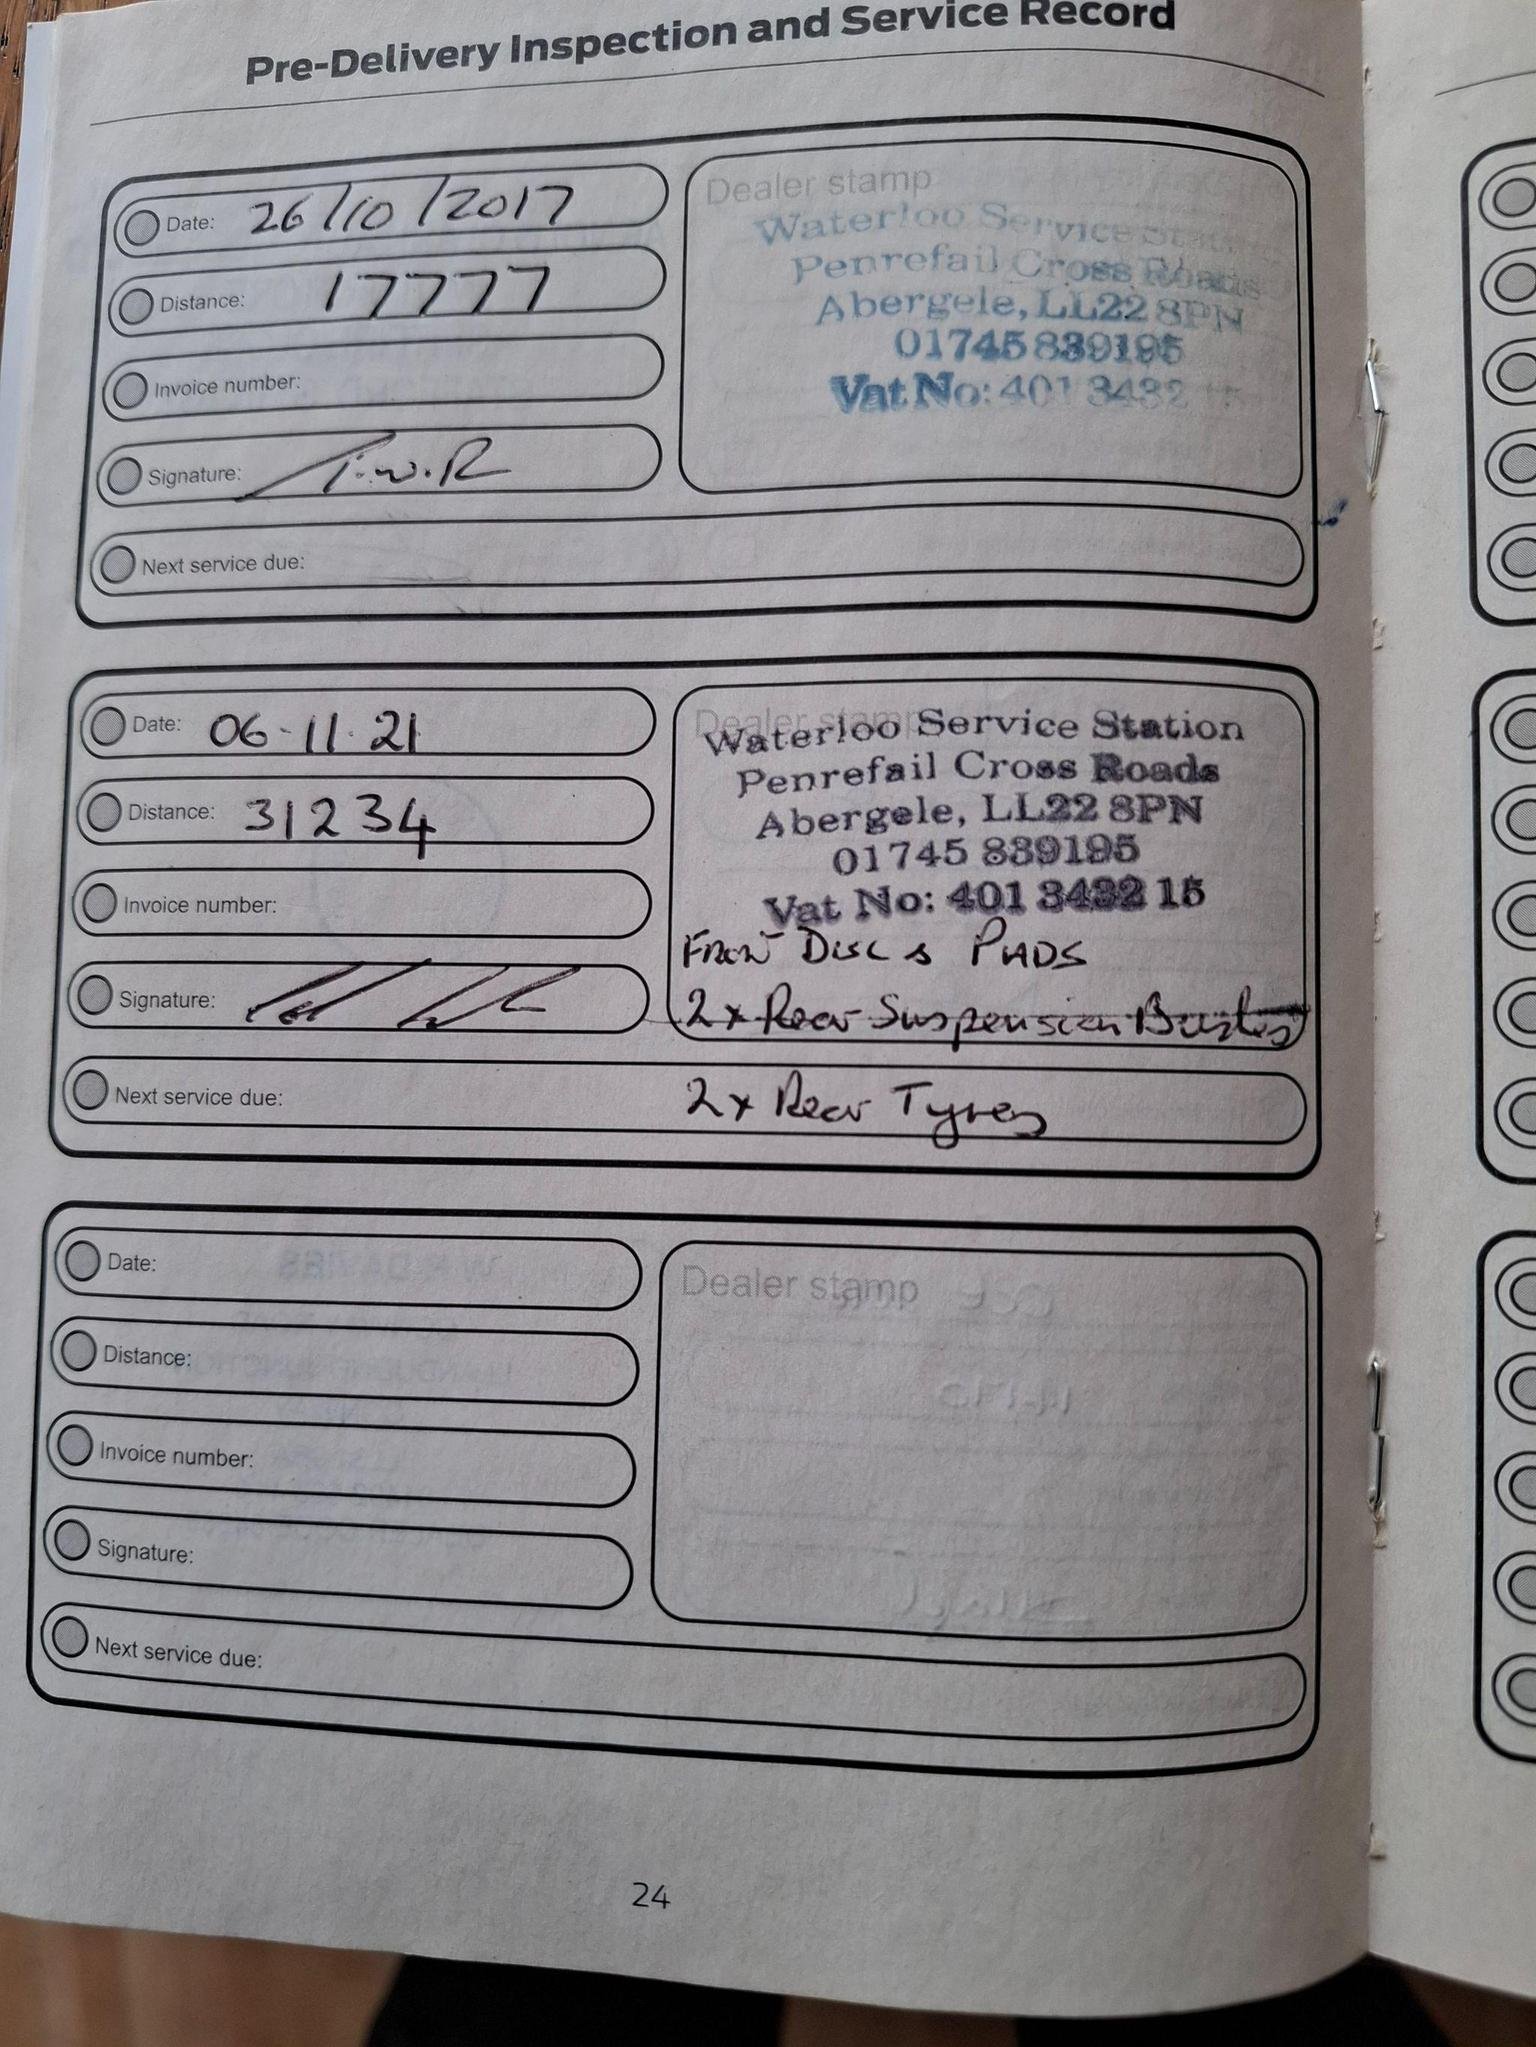 Pre-Delivery Inspection and Service Record
Date: 26/10/2017
Distance: 17777
Invoice number:
Signature: T.W.R
Next service due:
Dealer stamp
Waterloo Service
Penrefail Cross Roads
Abergele, LL22 8PN
01745 839195
Vat No: 401 3432 15
Date: 06-11-21
Distance: 31234
Invoice number:
Signature:
Next service due:
Dealer stamp
Waterloo Service Station
Penrefail Cross Roads
Abergele, LL22 8PN
01745 839195
Vat No: 401 3432 15
Front Disc s Pads
2x Rear Suspension
2x Rear Tyres
Date:
Distance:
Invoice number:
Signature:
Next service due:
Dealer stamp
24